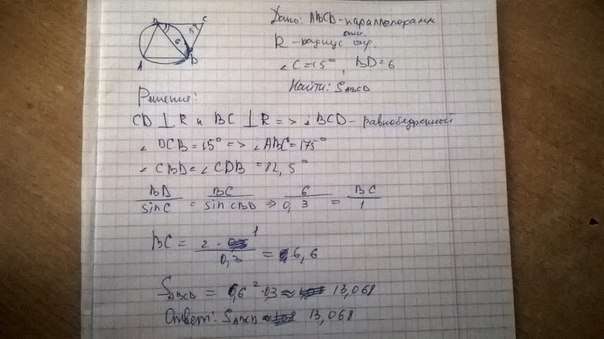 B
C
15°
6
A
D
Дано: ABCD - параллелограмм
R - радиус опис. окр.
∠C = 15°, BD = 6
Найти: S ABCD
Решение:
CD ⊥ R и BC ⊥ R => ∠BCD - равнобедренный
∠DCB = 15° => ∠ABC = 175°
∠CBD = ∠CDB = 82,5°
BD/sin C = BC/sin CBD => 6/0,3 = BC/1
BC = 2 · 1/0,3 = 6,6
S ABCD = 6,6² · 0,3 ≈ 13,068
Ответ: S ABCD 13,068